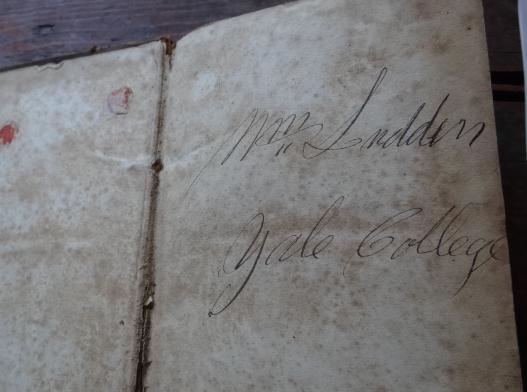 Wm Ludden
Yale College